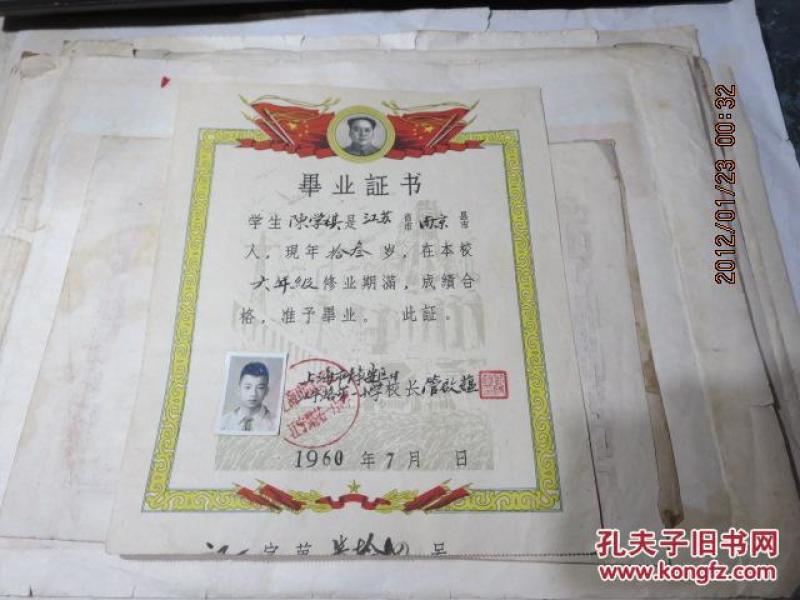 畢业証书
学生陳学琪是江苏省市南京县市
人，現年拾叁岁，在本校
六年級修业期滿，成績合
格，准予畢业。 此証。
上海市
路第一小学校长管啟蕴
1960年7月 日
字第 拾 号
2012/01/23 00:32
孔夫子旧书网
www.kongfz.com